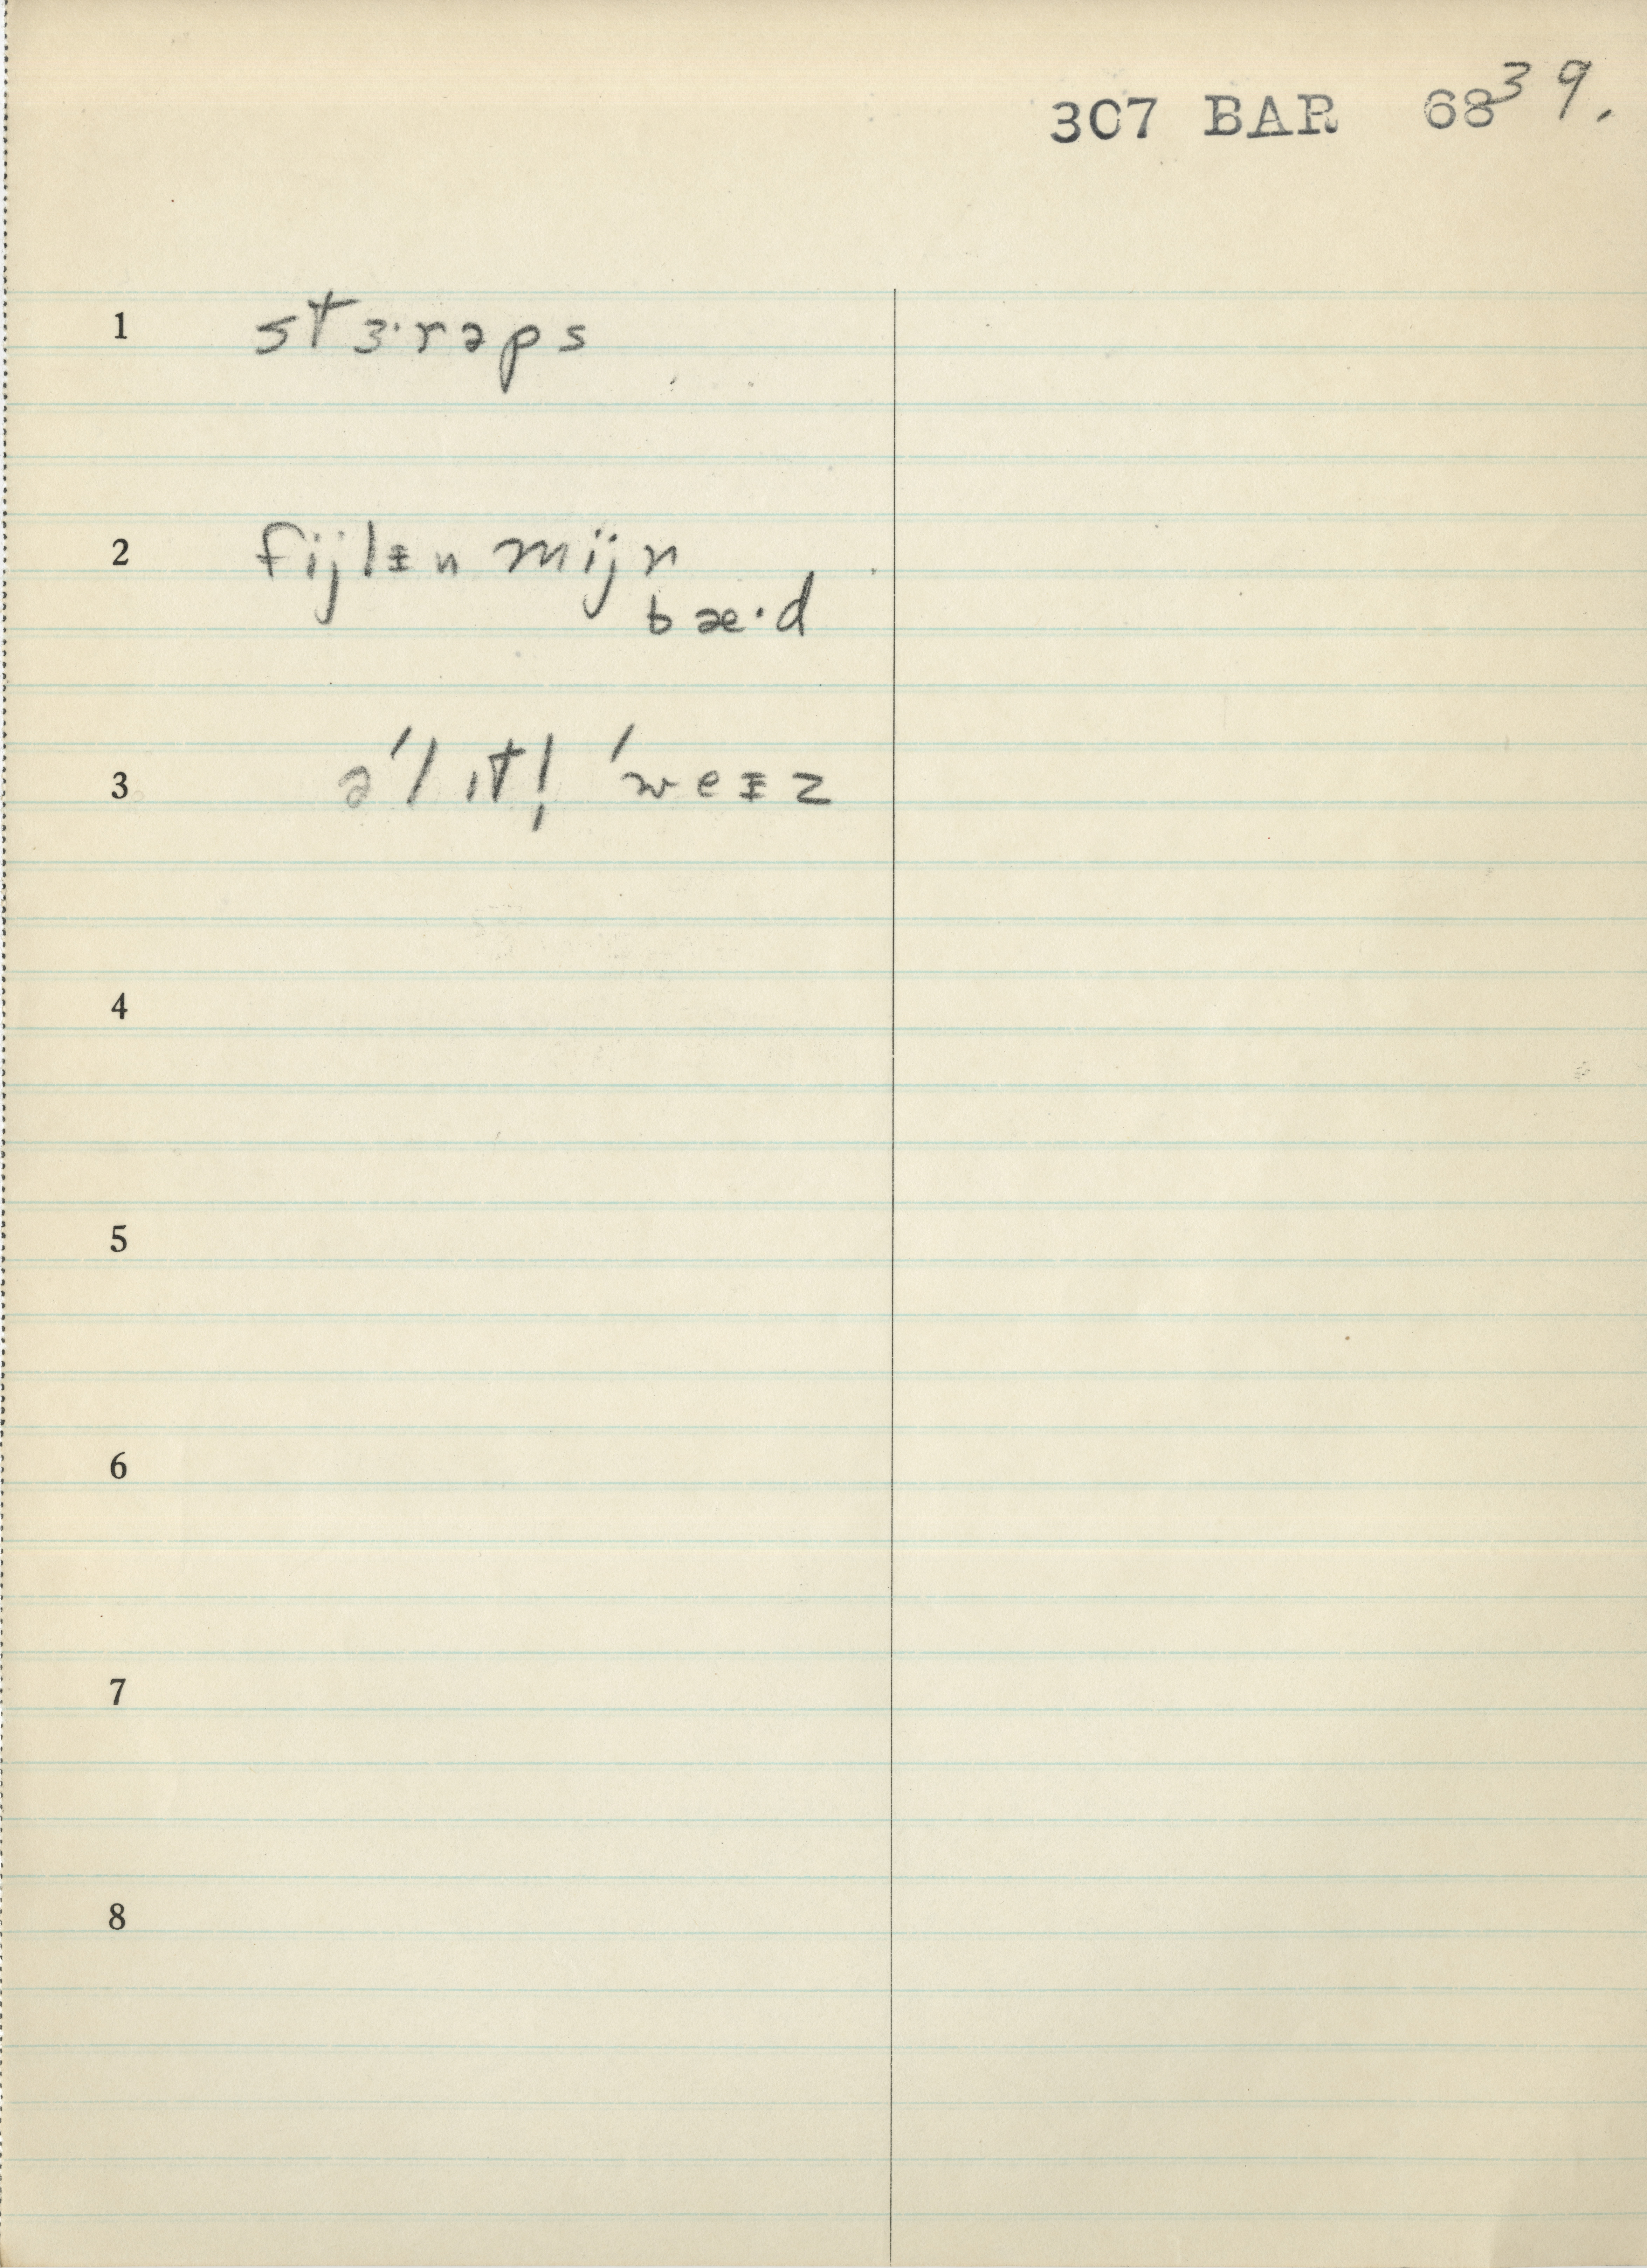 307 BAR 68 39.
1 stɜ·rəps
2 fijlᵻn mijn
bæ·d
3 ə'l ɪt! 'weᵻz
4
5
6
7
8